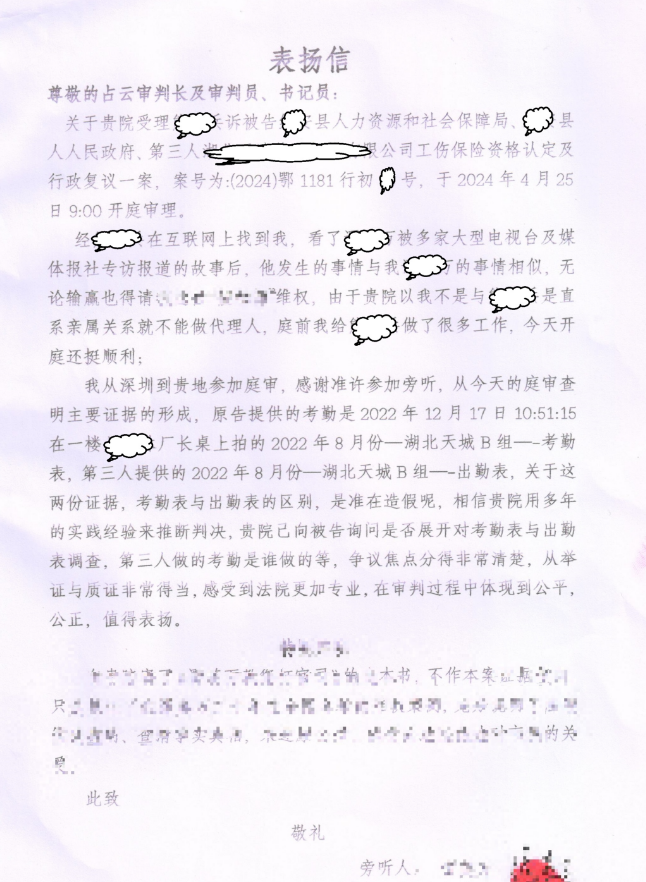 表扬信
尊敬的占云审判长及审判员、书记员：
关于贵院受理 诉被告 县人力资源和社会保障局、 县
人人民政府、第三人 限公司工伤保险资格认定及
行政复议一案，案号为:(2024)鄂 1181 行初 号，于 2024 年 4 月 25
日 9:00 开庭审理。
经 在互联网上找到我，看了 被多家大型电视台及媒
体报社专访报道的故事后，他发生的事情与我 的事情相似，无
论输赢也得请 维权，由于贵院以我不是与 是直
系亲属关系就不能做代理人，庭前我给 做了很多工作，今天开
庭还挺顺利；
我从深圳到贵地参加庭审，感谢准许参加旁听，从今天的庭审查
明主要证据的形成，原告提供的考勤是 2022 年 12 月 17 日 10:51:15
在一楼 厂长桌上拍的 2022 年 8 月份—湖北天城 B 组—-考勤
表，第三人提供的 2022 年 8 月份—湖北天城 B 组—-出勤表，关于这
两份证据，考勤表与出勤表的区别，是准在造假呢，相信贵院用多年
的实践经验来推断判决，贵院已向被告询问是否展开对考勤表与出勤
表调查，第三人做的考勤是谁做的等，争议焦点分得非常清楚，从举
证与质证非常得当，感受到法院更加专业，在审判过程中体现到公平，
公正，值得表扬。
本书，不作本案
只
的关
此致
敬礼
旁听人：